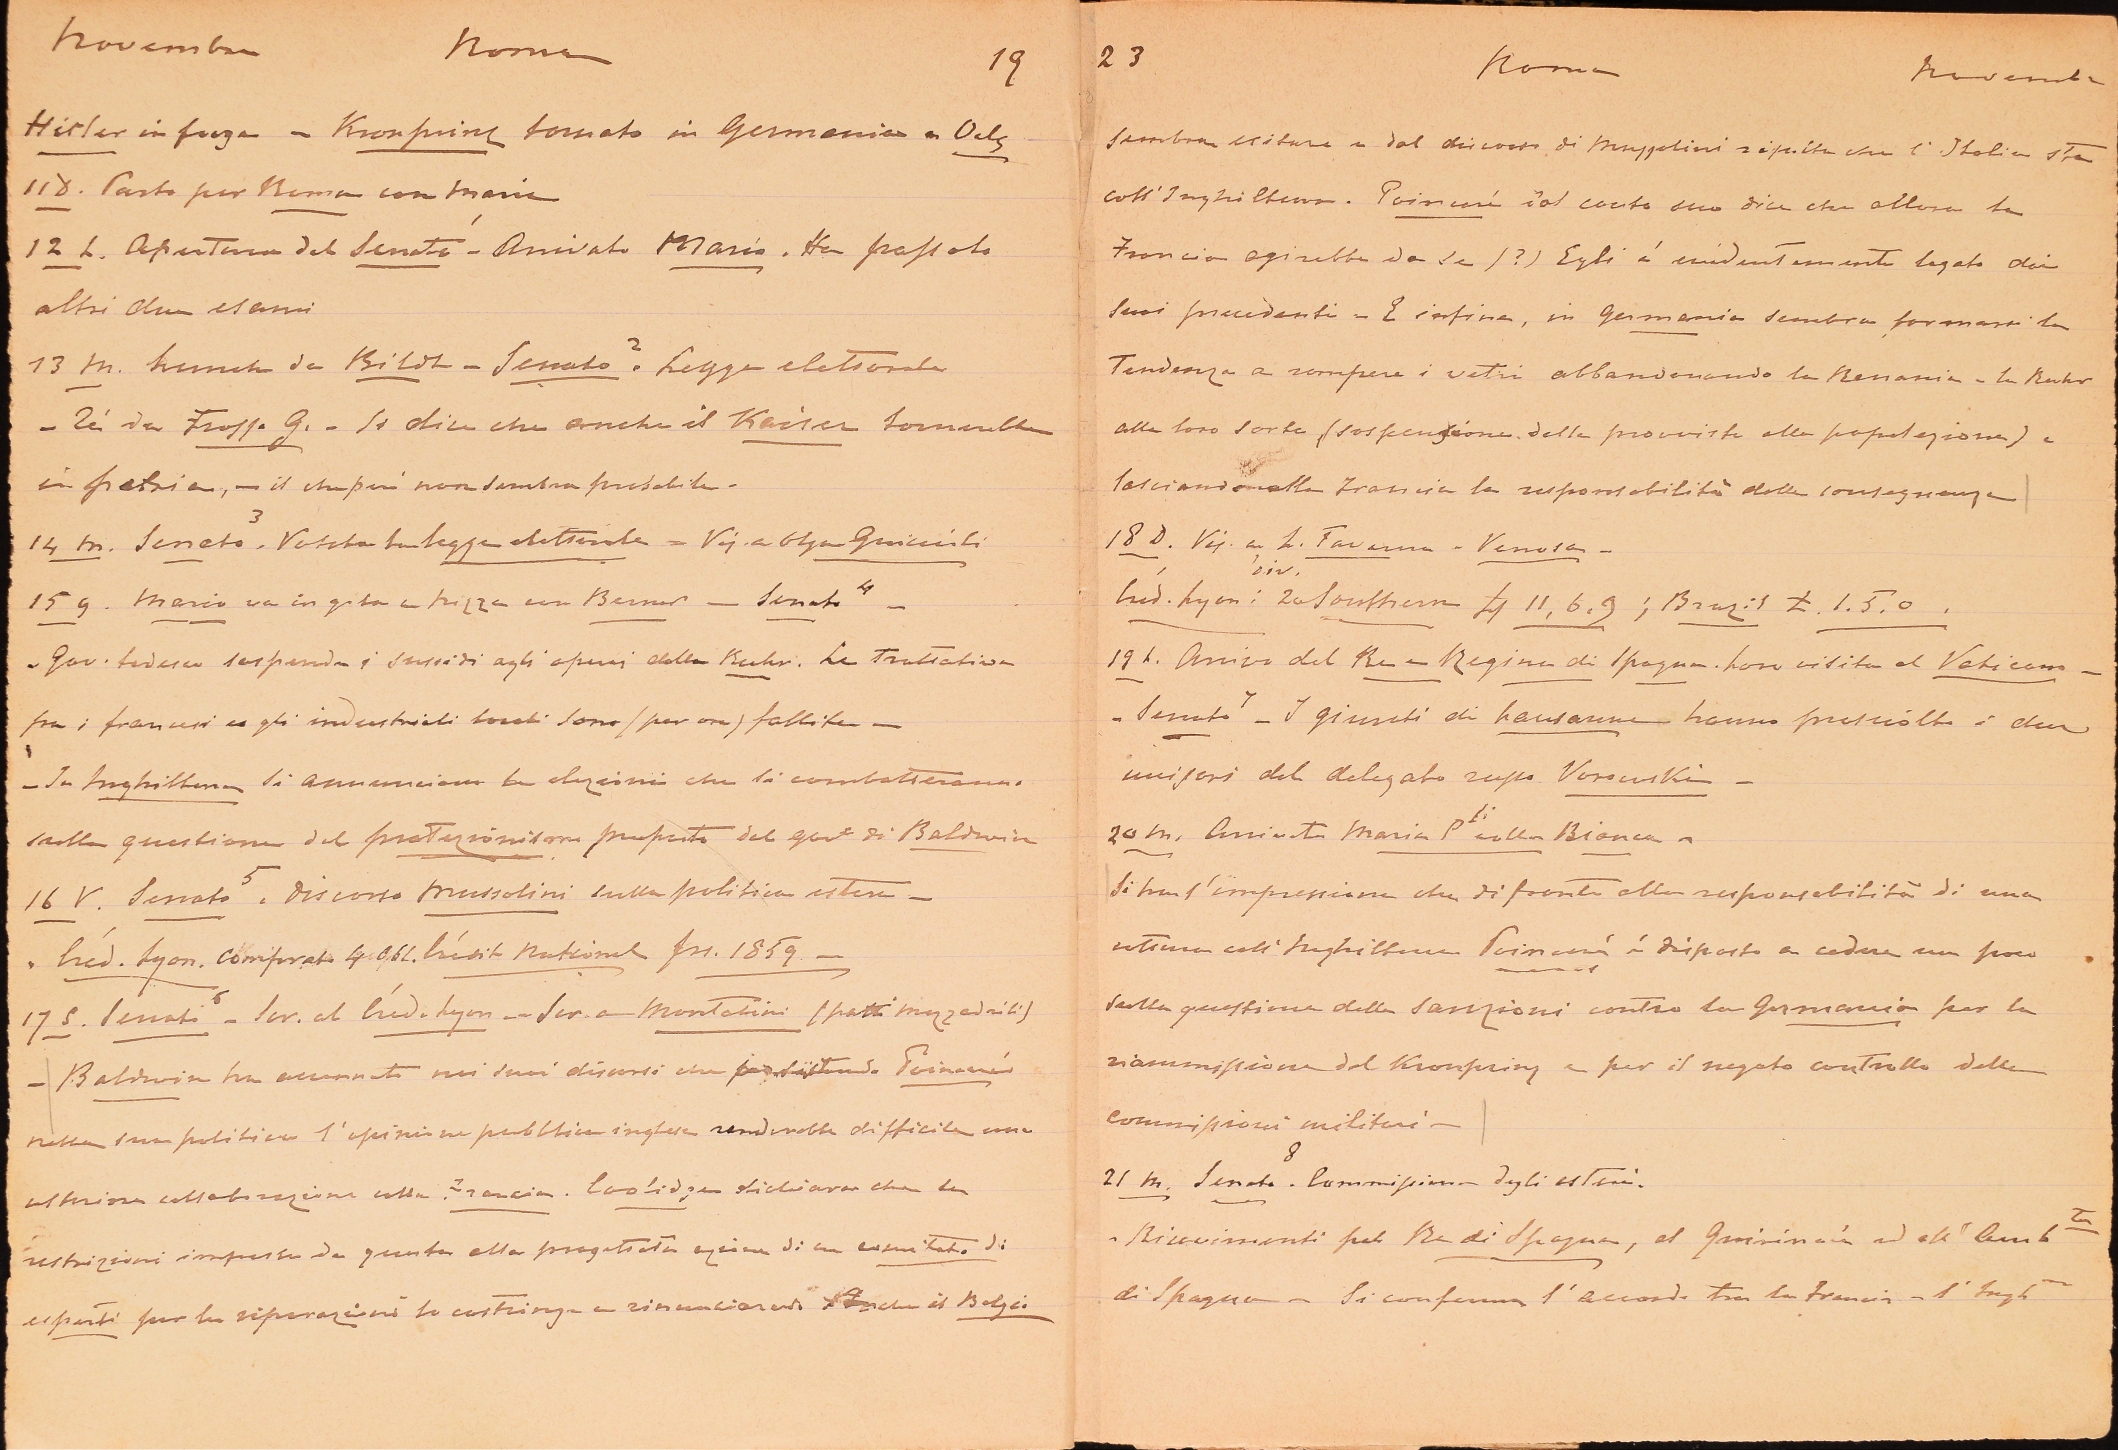 Novembre Roma 19
Hitler in fuga – Kronprinz tornato in Germania a Oels
11 D. Parto per Roma con Maria
12 L. Apertura del Senato 1 – Arrivato Mario. Ha passato
altri due esami
13 M. Lunch da Bildt – Senato 2. Legge elettorale
– Té da Frasso G. – Si dice che anche il Kaiser tornerebbe
in patria, – il che però non sembra probabile –
14 M. Senato 3. Votata la legge elettorale – Vis. a Olga Guiccioli
15 g. Mario va in gita a Nizza con Berner – Senato 4 –
– Gov. tedesco sospende i sussidi agli operai della Ruhr. Le trattative
fra i francesi e gli industriali locali sono (per ora) fallite –
– In Inghilterra si annunciano le elezioni che si combatteranno
sulla questione del protezionismo proposto dal gov.o di Baldwin
16 V. Senato 5. Discorso Mussolini sulla politica estera –
. Créd. Lyon. Comprato 4 Obl. Crédit National frs. 1859 –
17 S. Senato 6 – Scr. al Créd. Lyon – Scr. a Montatini (patti mezzadrili)
– Baldwin ha accennato nei suoi discorsi che persistendo Poincaré
nella sua politica l'opinione pubblica inglese renderebbe difficile una
ulteriore collaborazione colla Francia. Coolidge dichiara che le
restrizioni imposte da questa alla progettata azione di un comitato di
esperti per le riparazioni lo costringe a rinunciarvi. Anche il Belgio
23 Roma Novembre
sembra esitare e dal discorso di Mussolini risulta che l'Italia sta
coll'Inghilterra. Poincaré dal canto suo dice che allora la
Francia agirebbe da se (?) Egli é evidentemente legato dai
suoi precedenti – E infine, in Germania sembra formarsi la
Tendenza a rompere i vetri abbandonando la Renania e la Ruhr
alla loro sorte (sospensione delle provviste alla popolazione) e
lasciando alla Francia la responsabilità delle conseguenze
18 D. Vis. a L. Taverna – Venosa –
Créd. Lyon: div. 20 Southern £ 11, 6, 9; Brazil £. 1. 5. 0.
19 L. Arrivo del Re e Regina di Spagna. Loro visita al Vaticano –
– Senato 7 – I giurati di Lausanne hanno prosciolto i due
uccisori del delegato russo Vorowski –
20 M. Arrivata Maria P.li colla Bianca –
Si ha l'impressione che di fronte alla responsabilità di una
rottura coll'Inghilterra Poincaré é disposto a cedere un poco
sulla questione delle sanzioni contro la Germania per la
riammissione del Kronprinz e per il negato controllo delle
commissioni militari –
21 M. Senato 8. Commissione degli esteri.
– Ricevimenti pel Re di Spagna, al Quirinale ed all'Amb.ta
di Spagna – Si conferma l'accordo tra la Francia e l'Ingh